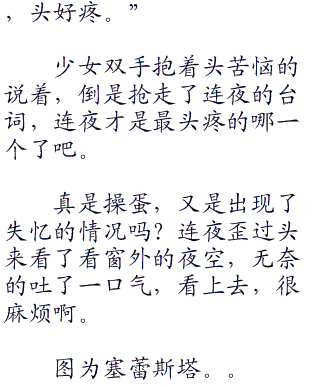 ，头好疼。”
少女双手抱着头苦恼的
说着，倒是抢走了连夜的台
词，连夜才是最头疼的哪一
个了吧。
真是操蛋，又是出现了
失忆的情况吗？连夜歪过头
来看了看窗外的夜空，无奈
的吐了一口气，看上去，很
麻烦啊。
图为塞蕾斯塔。。